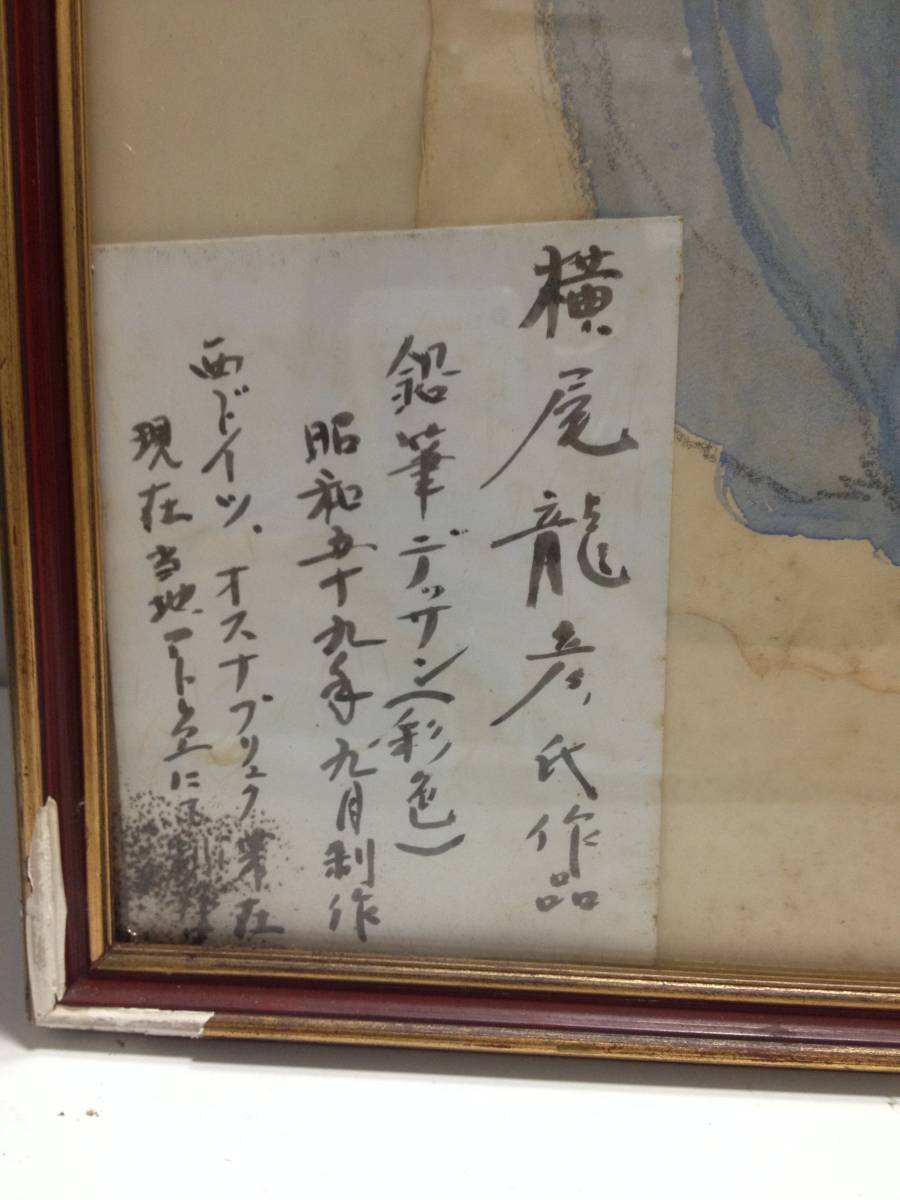 横尾龍彦氏作品
鉛筆デッサン(彩色)
昭和五十九年九月制作
西ドイツ.オスナブリュク 在
現在当地アトリエにて制